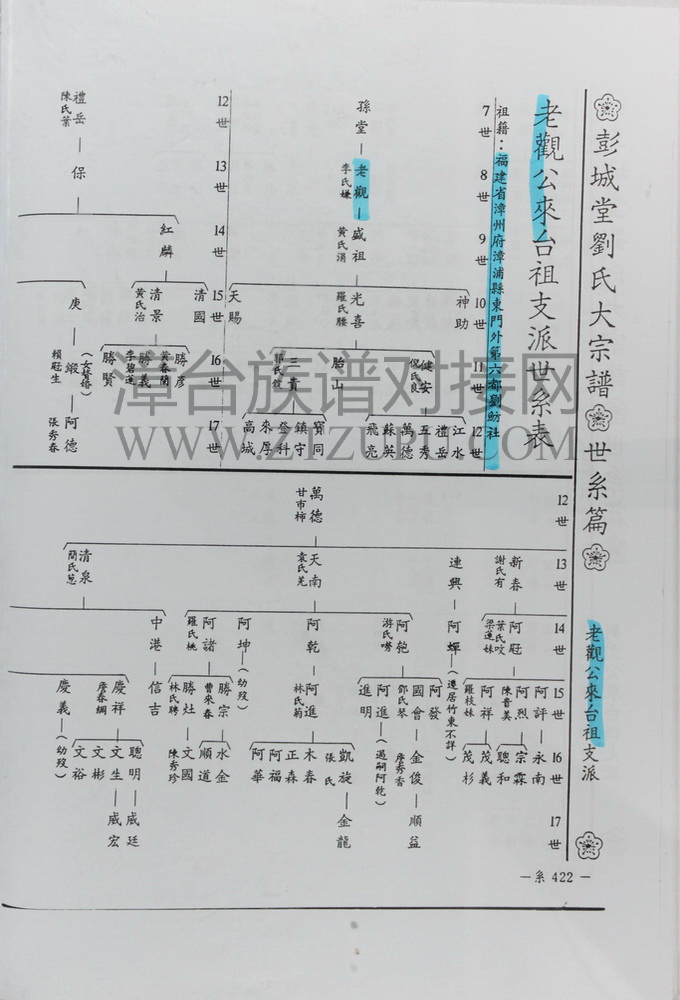 彭城堂劉氏大宗譜 世系篇
老觀公來台祖支派
老觀公來台祖支派世系表
祖籍：福建省漳州府漳浦縣東門外第六都劉魴社
7世 8世 9世 10世 11世 12世
孫堂—老觀—盛祖—光喜
李氏嫌
黃氏涓
羅氏腰
神助
天賜
健安
倪氏良
胎山
三貴
郭氏㨗
江水
禮岳
五秀
萬德
蘇英
飛亮
寶同
鎮守
登科
來厚
高城
12世 13世 14世 15世 16世 17世
禮岳—保
陳氏葉
紅麟
清國
清景
黃氏治
勝彥
黃春蘭
勝義
李碧蓮
勝賢
庚—緞—阿德
(女贅婚)
賴冠生
張秀春
12世 13世 14世 15世 16世 17世
萬德
甘市柿
新春
謝氏有
連興—阿蟬(遷居竹東不詳)
天南
袁氏羌
清泉
簡氏葱
阿冠
葉氏哎
梁蓮妹
阿評—永南
阿烈—宗霖
陳音美
聰和
阿祥—茂義
羅枝妹
茂杉
阿匏
游氏嘮
阿發
國會—金俊—順益
鄧氏琴
詹秀香
阿進—(過嗣阿乾)
進明
阿乾—阿進
林氏菊
凱旋—金龍
張氏
木春
正森
阿福
阿華
阿坤—(幼歿)
阿諸
羅氏桃
勝宗—水金
曹來春
順道
勝灶—文國
林氏聘
陳秀珍
中港—信吉
慶祥
詹春綢
聰明—威廷
文生—威宏
文彬
文裕
慶義—(幼歿)
—系 422—
漳台族谱对接网
WWW.ZTZUPU.COM